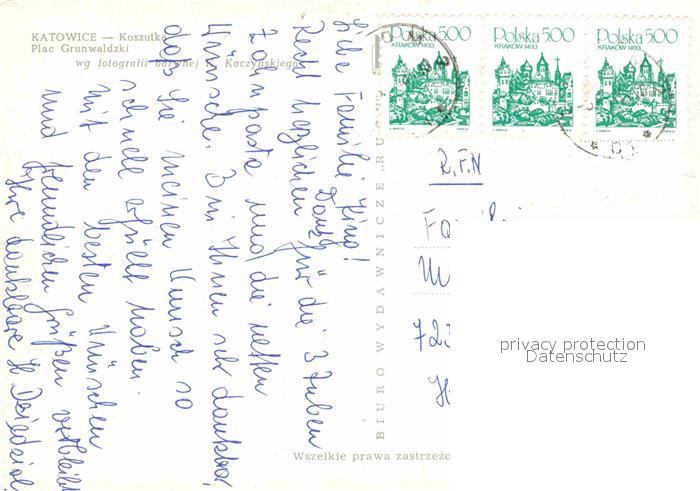 KATOWICE — Koszutka
Plac Grunwaldzki
wg fotografii barwnej Kaczyńskiego
Polska 500
KRAKÓW 1493
Polska 500
KRAKÓW 1493
Polska 500
KRAKÓW 1493
Liebe Familie King!
Recht herzlichen Dank für die 3 Tuben
Zahnpasta und die netten
Wünsche. Bin Ihnen sehr dankbar,
daß Sie meinen Wunsch so
schnell erfüllt haben.
Mit den besten Wünschen
und freundlichen Grüßen verbleibt
Ihre dankbare H
BIURO WYDAWNICZE „RUCH
R.F.N
Fa
72
H
privacy protection
Datenschutz
Wszelkie prawa zastrzeżo